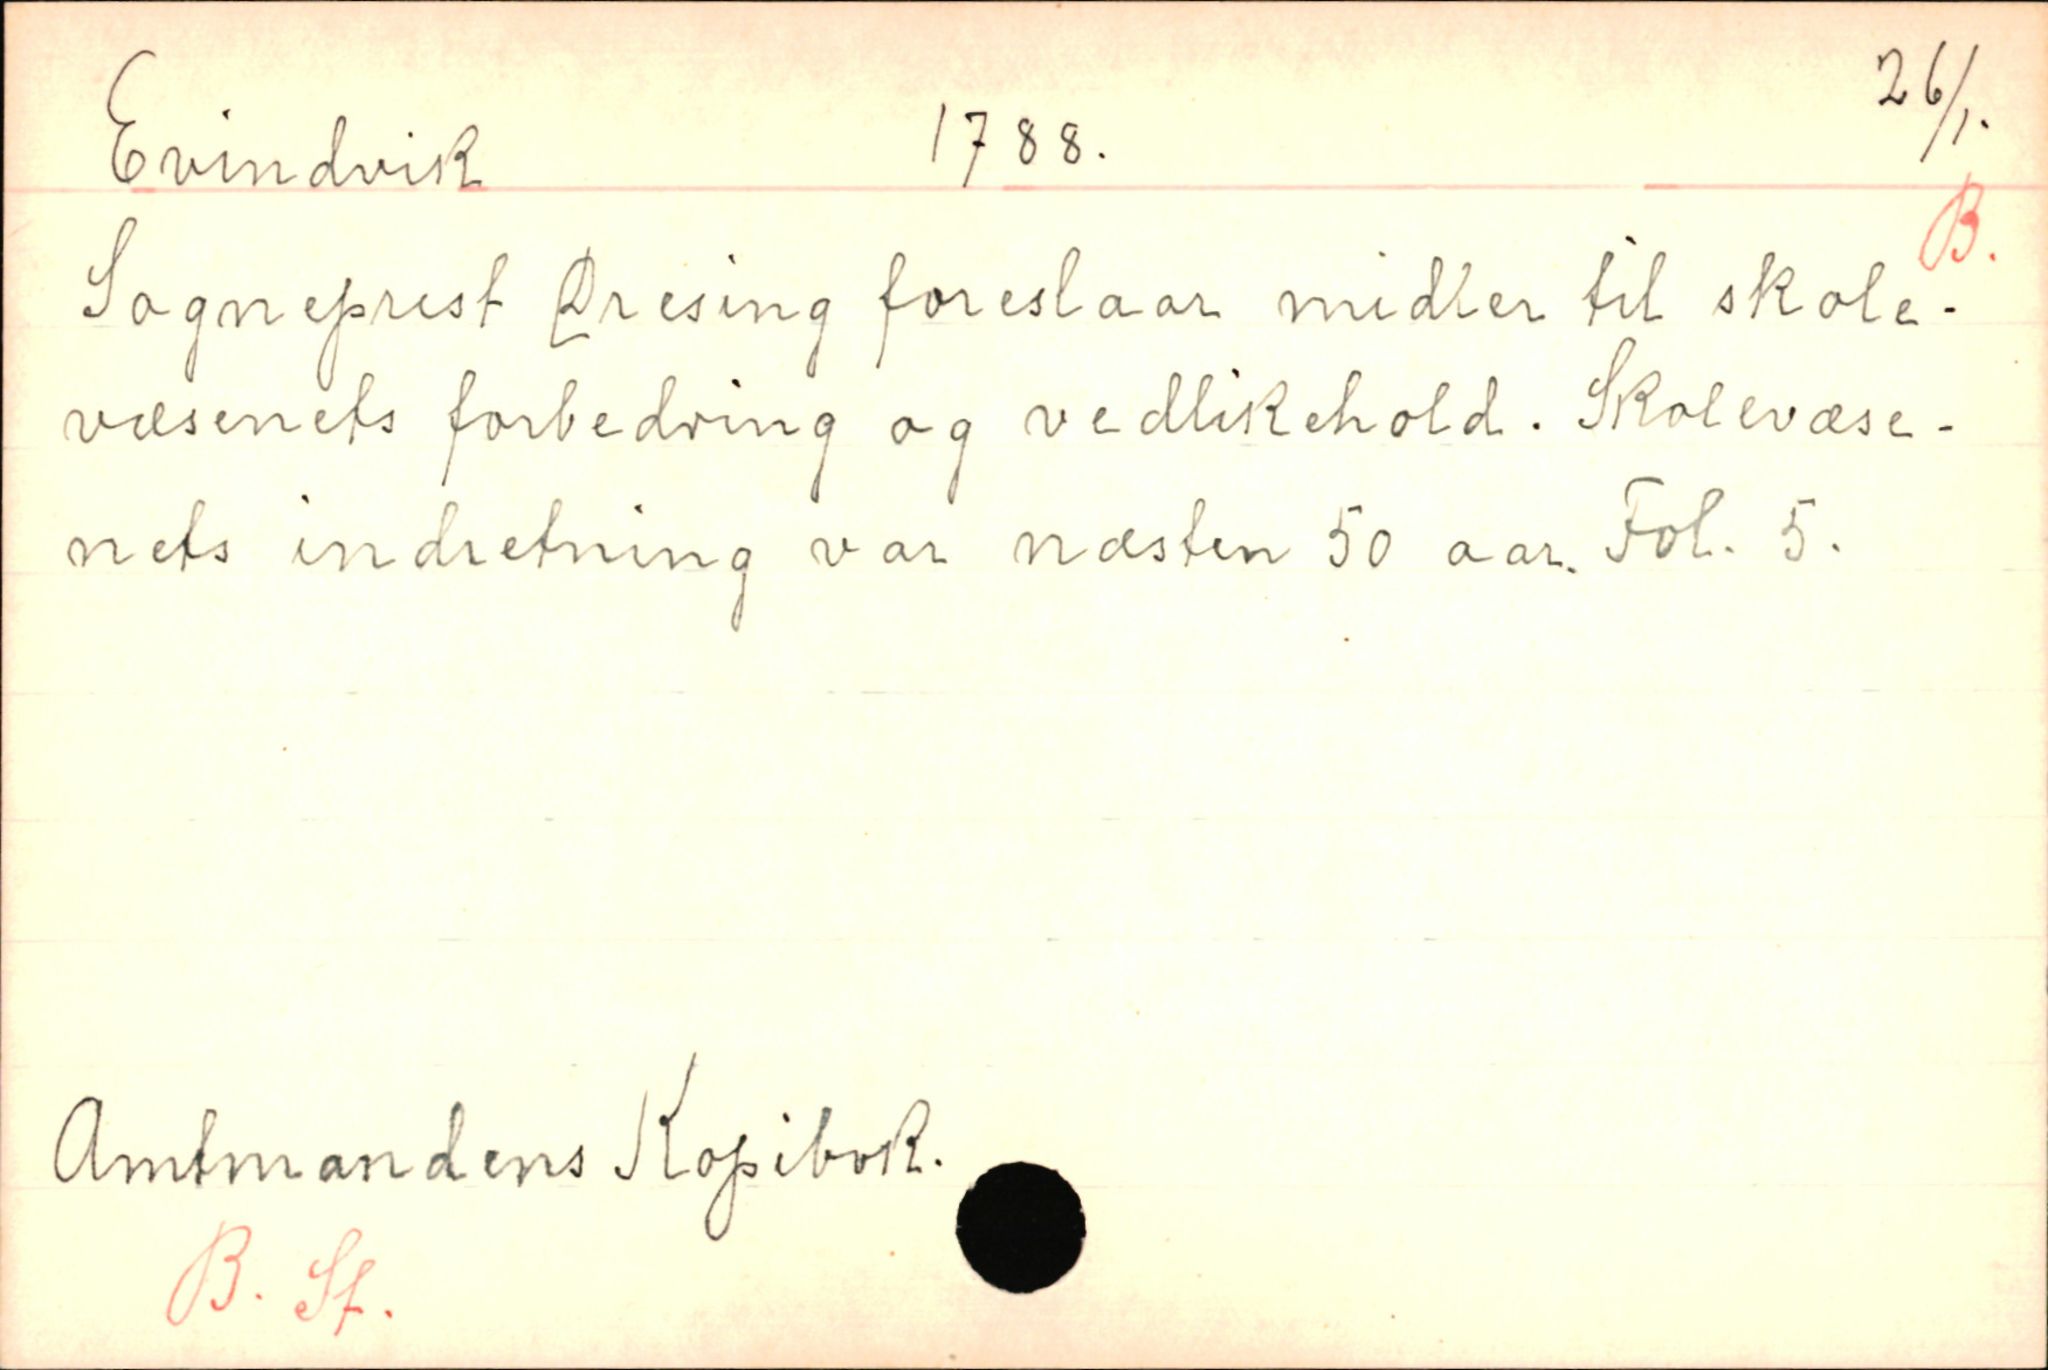 Evindvik 1788. 26/1.
B.
Sogneprest Dresing foreslaar midler til skole-
væsenets forbedring og vedlikehold. Skolevæse-
nets indretning var næsten 50 aar. Fol. 5.
Amtmandens Kopibok.
B. St.